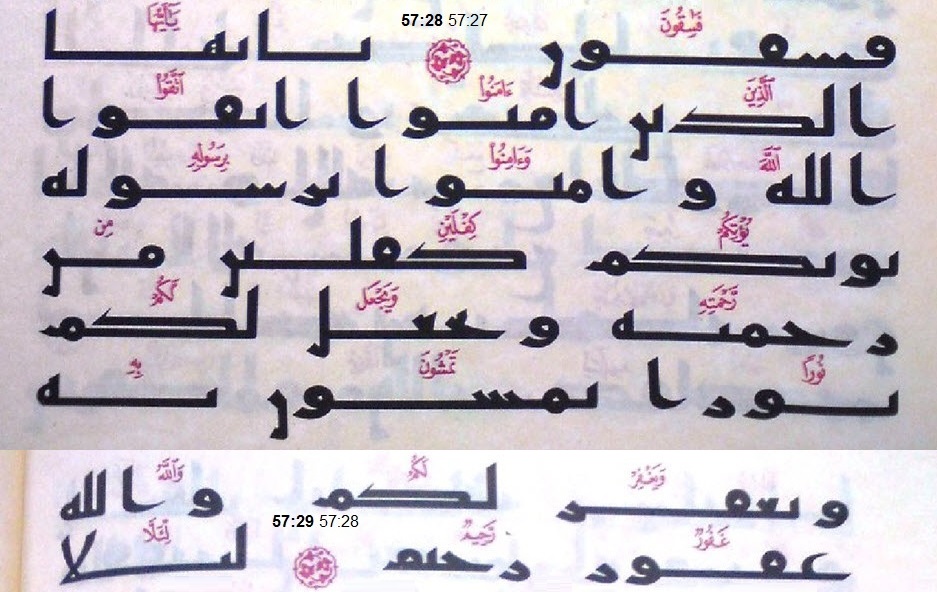 57:28 57:27
فَٰسِقُونَ يَٰٓأَيُّهَا
فسقون يايها
ٱلَّذِينَ ءَامَنُوا۟ ٱتَّقُوا۟
الذين امنوا اتقوا
ٱللَّهَ وَءَامِنُوا۟ بِرَسُولِهِ
الله وامنوا برسوله
يُؤْتِكُمْ كِفْلَيْنِ مِن
يوتكم كفلين من
رَّحْمَتِهِ وَيَجْعَل لَّكُمْ
رحمته ويجعل لكم
نُورًا تَمْشُونَ بِهِ
نورا تمشون به
وَيَغْفِرْ لَكُمْ وَٱللَّهُ
ويغفر لكم والله
57:29 57:28
غَفُورٌ رَّحِيمٌ لِّئَلَّا
غفور رحيم ليلا